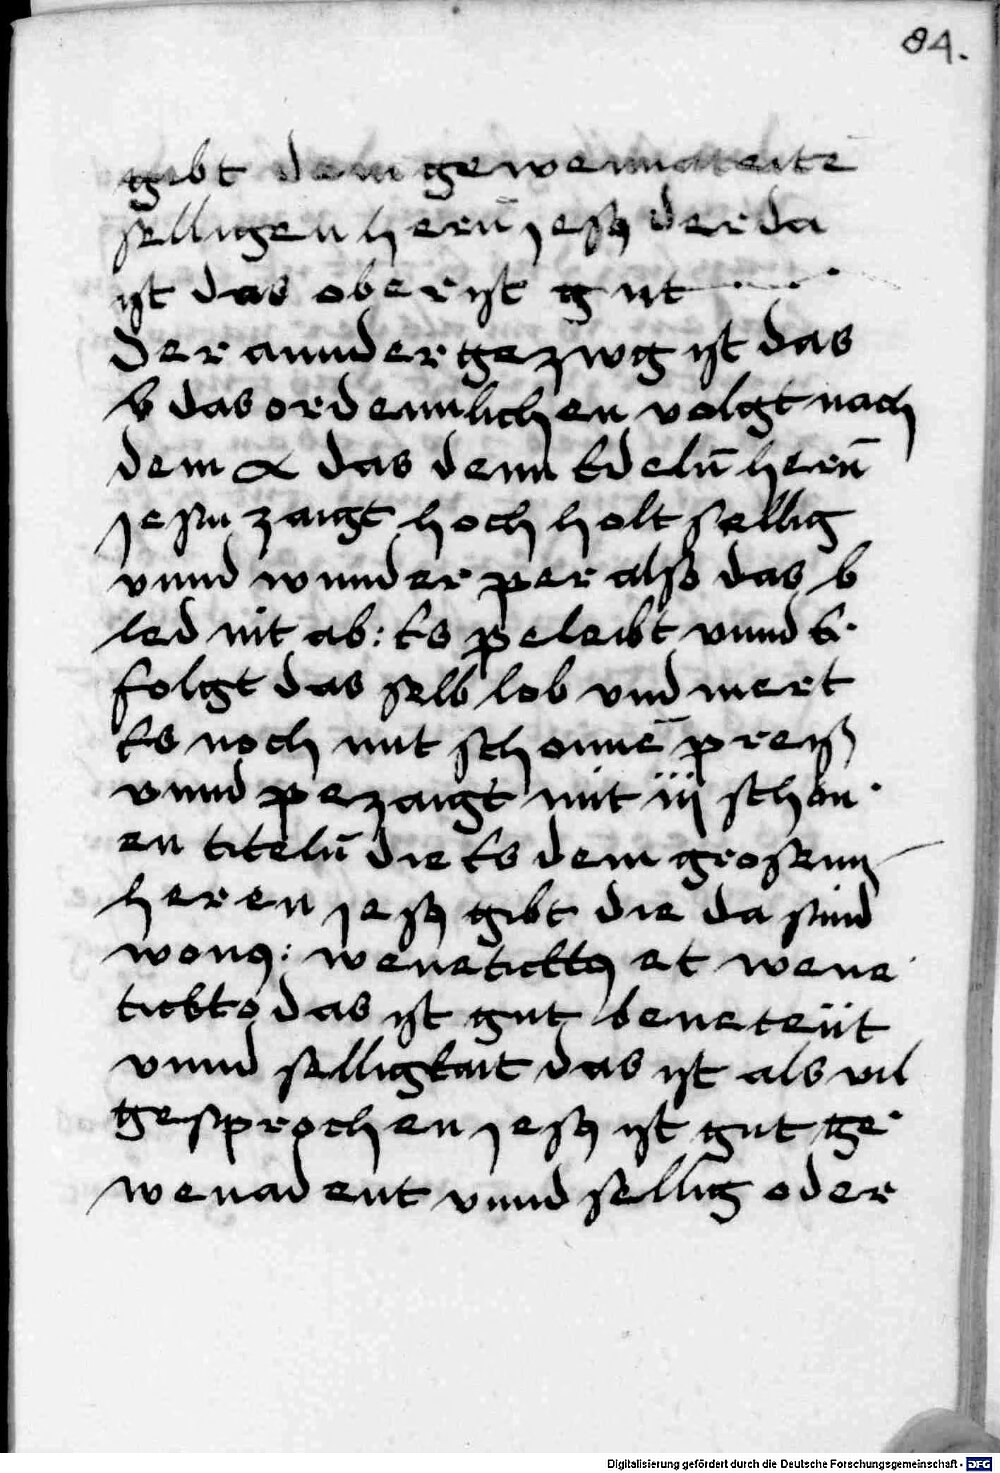 84.
gibt dem gewenndeite
selligen hernn̄ jesus der da
ist das oberist gut
Der annder gezwg ist das
b das ordennlichen volgt nach
dem α das denn Edelnn̄ hernn̄
jesu zaigt hoch holt sellig
vnnd wunder per also das b
led nit ab: Es peleibt vnnd E
folgt das selb lob vnd mert
Es noch mit schonnē preiß
vnnd pezaigt mit iij schön
en titelnn̄ die Es dem grosenn
heren jesus gibt die da sind
wonus: wenetickttus et wene
ticktos das ist gut beneteiit
vnnd selligkait das ist als vil
gesprochen jesus ist gut ge
wenadent vnnd sellig oder
Digitalisierung gefördert durch die Deutsche Forschungsgemeinschaft - DFG